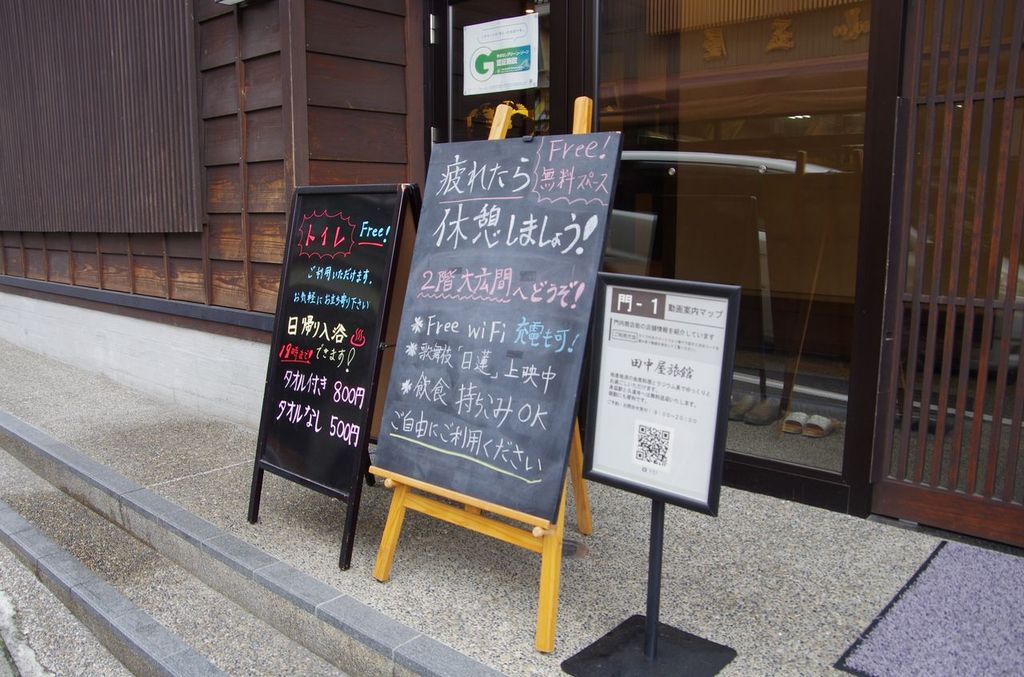 トイレ Free!
ご利用いただけます。
お気軽にお立ち寄り下さい
日帰り入浴
できます!
タオル付き 800円
タオルなし 500円
疲れたら
Free!
無料スペース
休憩しましょう!
2階大広間へどうぞ!
*Free wiFi 充電も可!
*歌舞伎「日蓮」上映中
*飲食 持ち込みOK
ご自由にご利用ください
G
認証施設
門-1 動画案内マップ
門内商店街の店舗情報を紹介しています
田中屋旅館